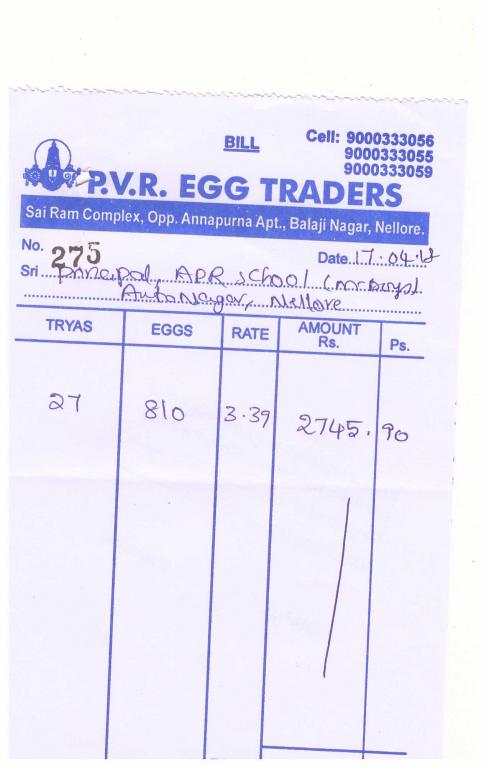 BILL
Cell: 9000333056
9000333055
9000333059
P.V.R. EGG TRADERS
Sai Ram Complex, Opp. Annapurna Apt., Balaji Nagar, Nellore.
No. 275 Date 17.04.12
Sri Principal, APR School (mr.Boys).
AutoNagar, Nellore
TRYAS EGGS RATE AMOUNT Rs. Ps.
27 810 3.39 2745. 90